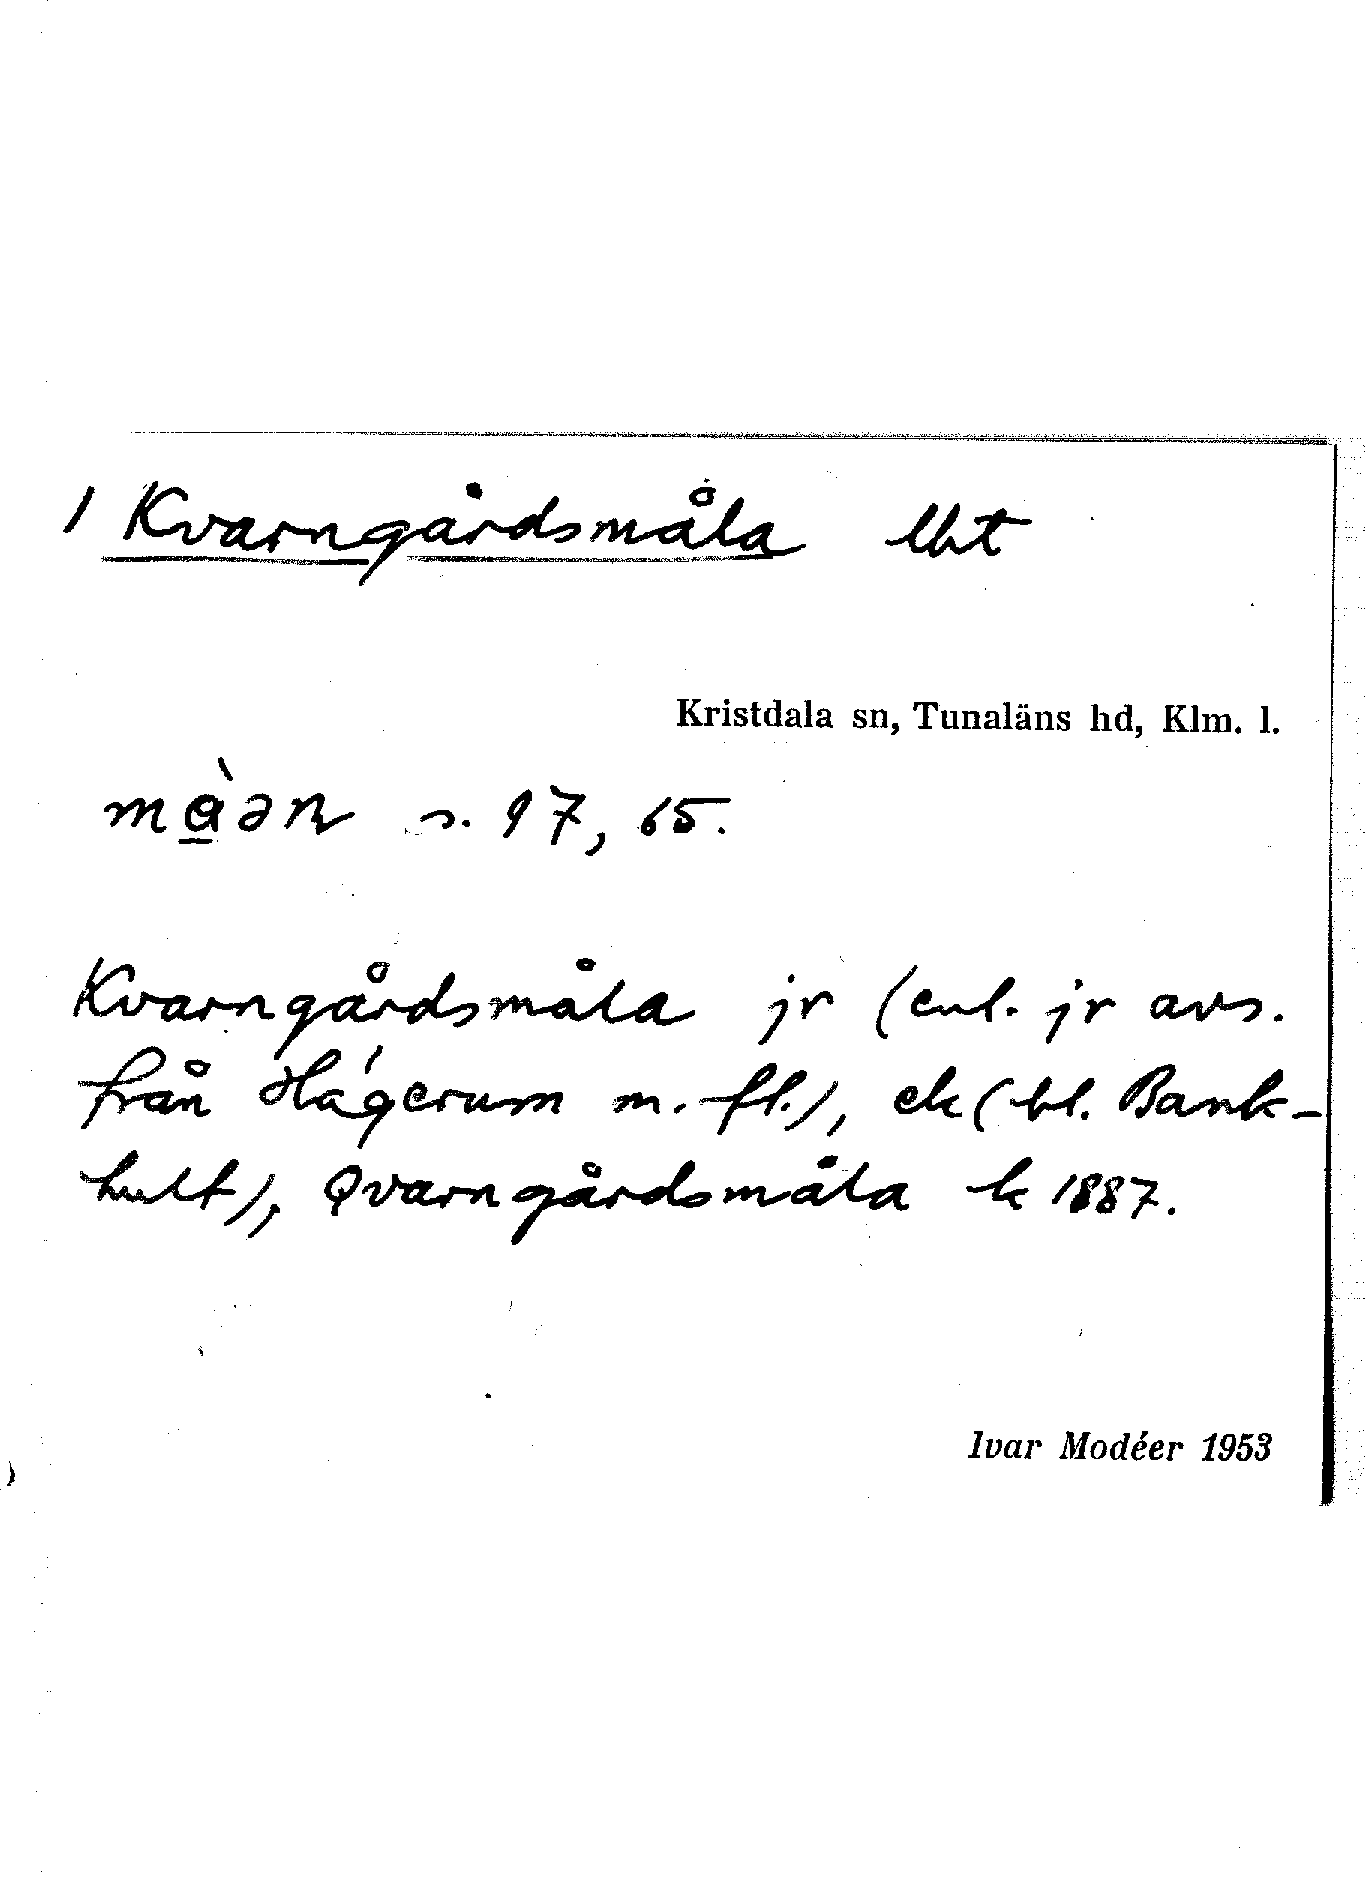 1 Kvarngårdsmåla lht
Kristdala sn, Tunaläns hd, Klm. l.
s. 97, 65.
Kvarngårdsmåla jr (enl. jr avs.
från Hágerum m. fl.), ek (bl. Bank-
hult), Qvarngårdsmåla k 1887.
Ivar Modéer 1953